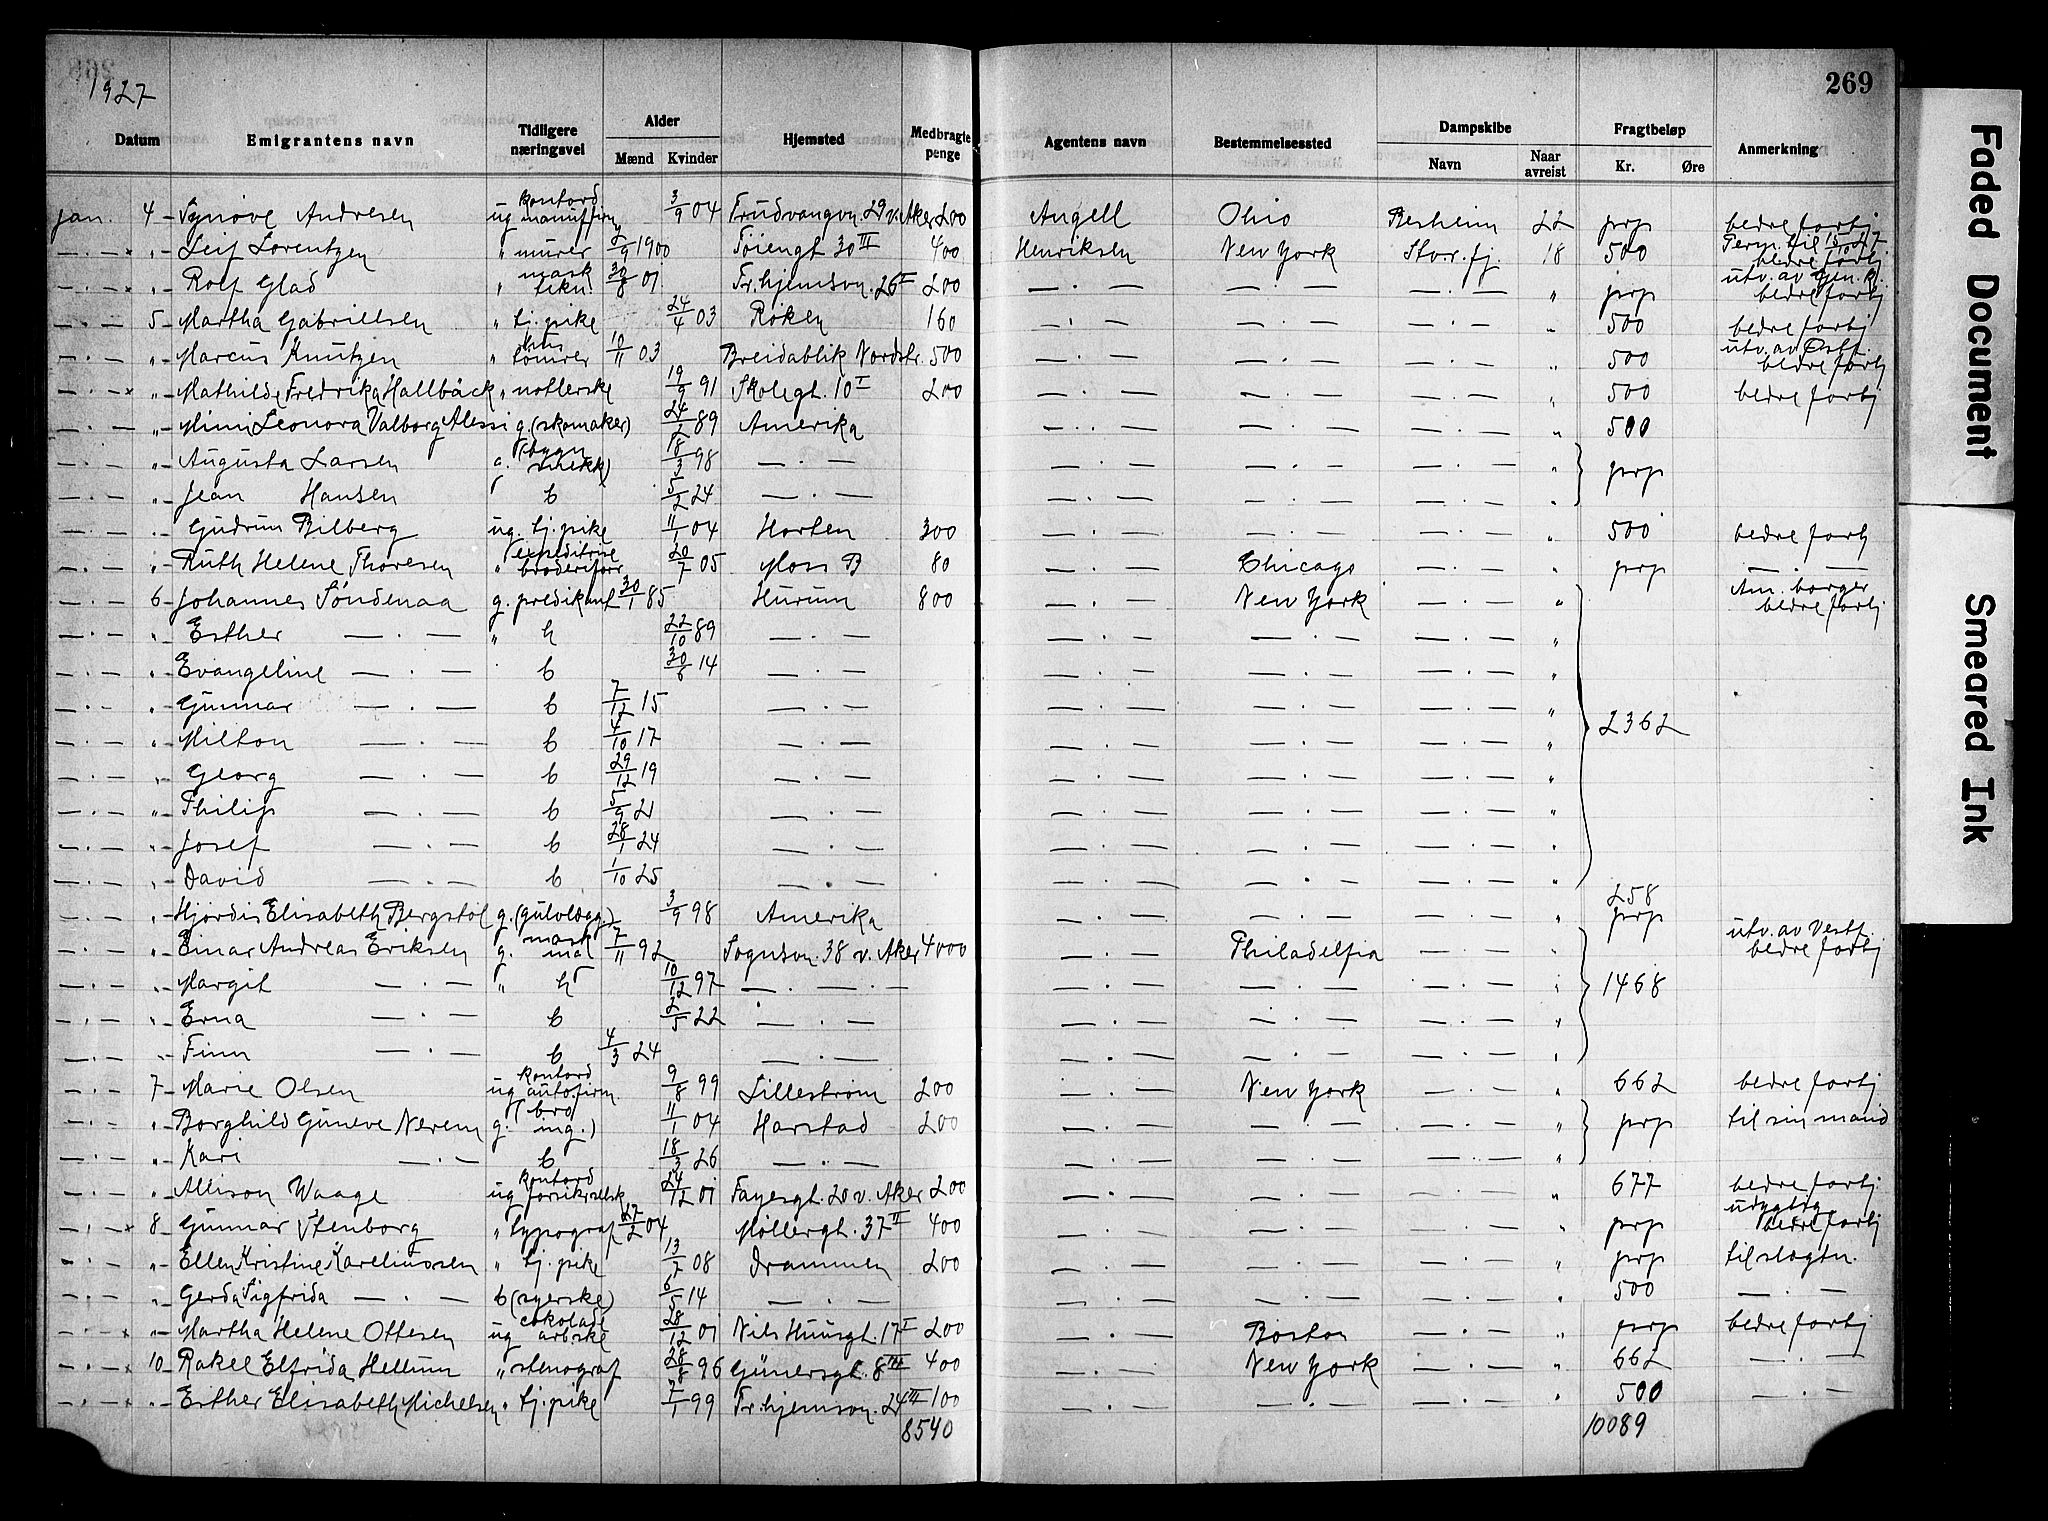 1927
269
Datum Emigrantens navn Tidligere næringsvei Alder Mænd Kvinder Hjemsted Medbragte penge Agentens navn Bestemmelsessted Dampskibe Navn Naar avreist Fragtbeløp Kr. Øre Anmerkning
jan. 4 Synøve Andresen ug kontord manuffirm 3/9 04 Trudvangvn. 29 v. Aker 200 Angell Ohio Besheim 22 prp bedre fortj
— . — " Leif Lorentzen " murer 2/9 1900 Tøiengt 30 III 400 Henriksen New York Stav.fj. 18 500 Perm. til 15/10 27 bedre fortj
— . — " Rolf Glad " mask tekn. 30/8 01 Fr.hjemsvn. 26 I 200 — . — — . — — . — " prp utv. av Gen.k. bedre fortj
— . — 5 Martha Gabrielsen " tj. pike 24/4 03 Røken 160 — . — — . — — . — " 500 bedre fortj
— . — " Marcus Knutzen " hus tømrer 10/11 03 Breidablik Nordstr. 500 — . — — . — — . — " 500 utv. av Østf. bedre fortj
— . — " Mathilde Fredrika Hallbäck " notlerske 19/9 91 Skolegt. 10 I 200 — . — — . — — . — " 500 bedre fortj
— . — " Mimi Leonora Valborg Alessi g. (skomaker) 24/2 89 Amerika — . — — . — — . — " 500
— . — " Augusta Larsen g. (bygn snekk) 18/3 98 — . — — . — — . — — . — " prp
— . — " Jean Hansen b 5/2 24 — . — — . — — . — — . — "
— . — " Gudrun Bilberg ug. tj. pike 11/1 04 Horten 300 — . — — . — — . — " 500 bedre fortj
— . — " Ruth Helene Thoresen " expeditrise broderiforr 20/7 05 Moss B 80 — . — Chicago — . — " prp — . —
— . — 6 Johannes Søndenaa g. predikant 30/1 85 Hurum 800 — . — New York — . — " Am. borger bedre fortj
— . — " Esther — . — " h 22/10 89 — . — — . — — . — — . — "
— . — " Evangeline — . — b 30/6 14 — . — — . — — . — — . — "
— . — " Gunnar — . — b 7/12 15 — . — — . — — . — — . — "
— . — " Milton — . — b 4/10 17 — . — — . — — . — — . — " 2362
— . — " Georg — . — b 29/12 19 — . — — . — — . — — . — "
— . — " Philip — . — b 5/9 21 — . — — . — — . — — . — "
— . — " Josef — . — b 28/1 24 — . — — . — — . — — . — "
— . — " David — . — b 1/10 25 — . — — . — — . — — . — "
— . — " Hjørdis Elisabeth Bergstøl g. (gulvlægg.) 3/9 98 Amerika — . — — . — — . — " 258 prp
— . — " Einar Andreas Eriksen g. mask mal 7/11 92 Sognsvn. 38 v. Aker 4000 — . — Philadelfia — . — " utv. av Vestf. bedre fortj
— . — " Margit — . — " h 10/12 97 — . — . — — . — — . — — . — " 1468
— . — " Erna — . — b 2/5 22 — . — — . — — . — — . — "
— . — " Finn — . — b 4/3 24 — . — — . — — . — — . — "
— . — 7 Marie Olsen ug kontord autofirm. 9/8 99 Lillestrøm 200 — . — New York — . — " 662 bedre fortj
— . — " Borghild Guneve Nerem g. (bro ing.) 11/1 04 Harstad 200 — . — — . — — . — " prp til sin mand
— . — " Kari — . — b 18/3 26 — . — — . — — . — — . — "
— . — " Allison Waage ug kontord forsikr.selsk 24/12 01 Fayesgt. 20 v. Aker 200 — . — — . — — . — " 677 bedre fortj.
— . — 8 Gunnar Stenborg " typograf 27/2 04 Møllergt. 37 II 400 — . — — . — — . — " prp udygtig bedre fortj
— . — " Ellen Kristine Karelinosen " tj. pike 13/7 08 Drammen 200 — . — — . — — . — " prp til slegtn.
— . — " Gerda Sigfrida — . — b (syerske) 6/5 14 — . — — . — — . — — . — " 500 — . —
— . — " Martha Helene Ottesen ug cokolade arbske 28/12 01 Nils Huusgt. 17 I 200 — . — Boston — . — " prp bedre fortj
— . — 10 Rakel Elfrida Hellum " stenograf 28/8 96 Günersgt. 8 III 400 — . — New York — . — " 662 — . —
— . — " Esther Elisabeth Michelsen " tj. pike 7/1 99 Fr.hjemsvn. 24 III 100 — . — — . — — . — " 500 — . —
8540 10089
Faded Document
Smeared Ink